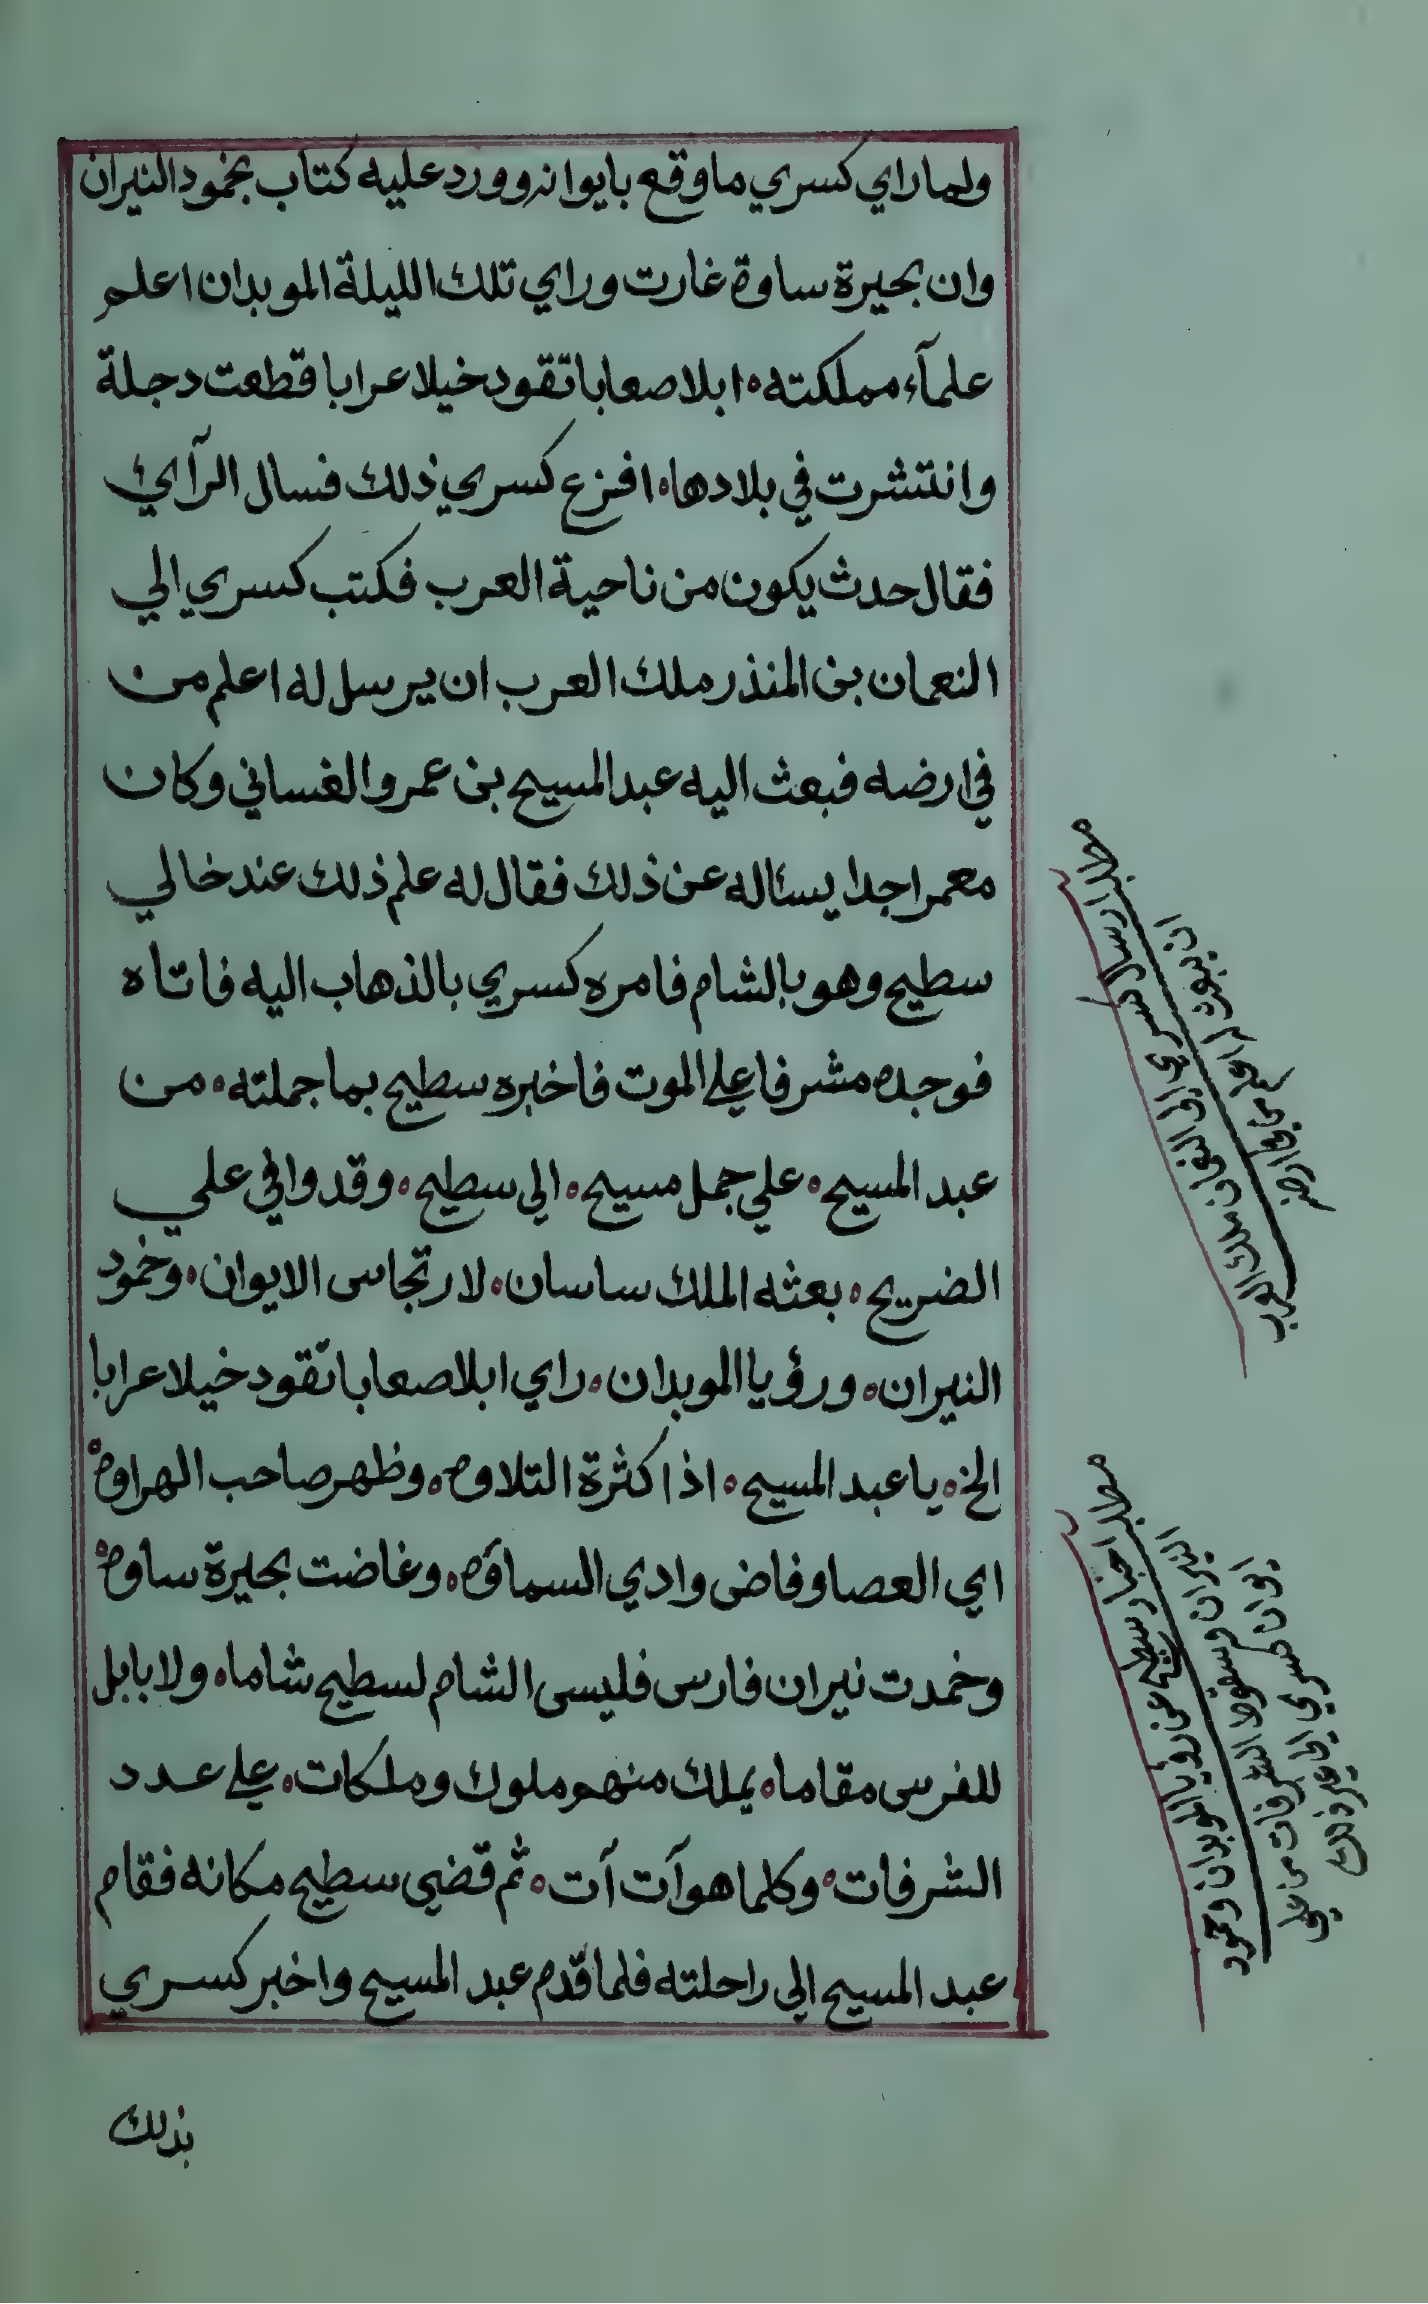 ولما راي كسري ما وقع بايوانه وورد عليه كتاب بخمود النيران
وان بحيرة ساوة غارت وراي تلك الليلة الموبدان اعلم
علمآء مملكته ابلا صعابا تقود خيلا عرابا قطعت دجلة
وانتشرت في بلادها افزع كسري ذلك فسال الرآيئ
فقال حدث يكون من ناحية العرب فكتب كسري الي
النعمان بن المنذر ملك العرب ان يرسل له اعلم من
في ارضه فبعث اليه عبد المسيح بن عمرو الغساني وكان
معمرا جدا يسئاله عن ذلك فقال له علم ذلك عند خالي
سطيح وهو بالشام فامره كسري بالذهاب اليه فاتاه
فوجده مشرفا علي الموت فاخبره سطيح بما جملته من
عبد المسيح علي جمل مسيح الي سطيح وقد وافي علي
الضريح بعثه الملك ساسان لارتجاس الايوان وخمود
النيران ورؤيا الموبدان راي ابلا صعابا تقود خيلا عرابا
الخ يا عبد المسيح اذا كثرة التلاوه وظهر صاحب الهراوه
اي العصا وفاض وادي السماوه وغاضت بحيرة ساوه
وخمدت نيران فارس فليس الشام لسطيح شاما ولا بابل
للفرس مقاما يملك منهم ملوك وملكات علي عدد
الشرفات وكلما هو آت آت ثم قضي سطيح مكانه فقام
عبد المسيح الي راحلته فلما قدم عبد المسيح واخبر كسري
بذلك
مطلب ارسال كسري الي النعمان ملك العرب
ان يبعث له اعلم
من في ارضه
مطلب اخبار سطيح عن رويا الموبدان وخمود
النيران وسقوط الشرفات من علي
ايوان كسري الي غير ذلك